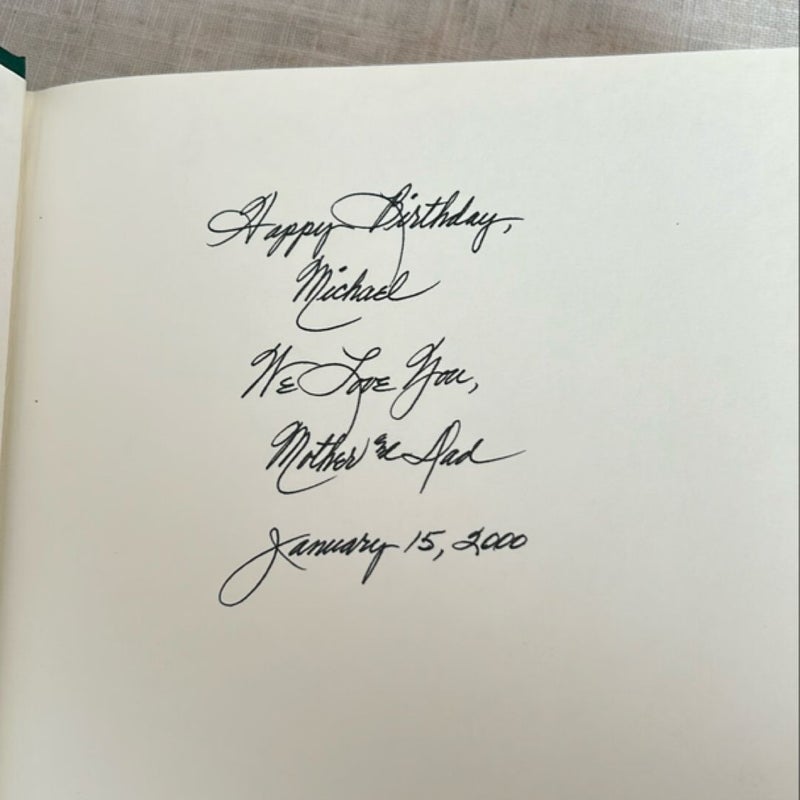 Happy Birthday,
Michael
We Love You,
Mother & Dad
January 15, 2000